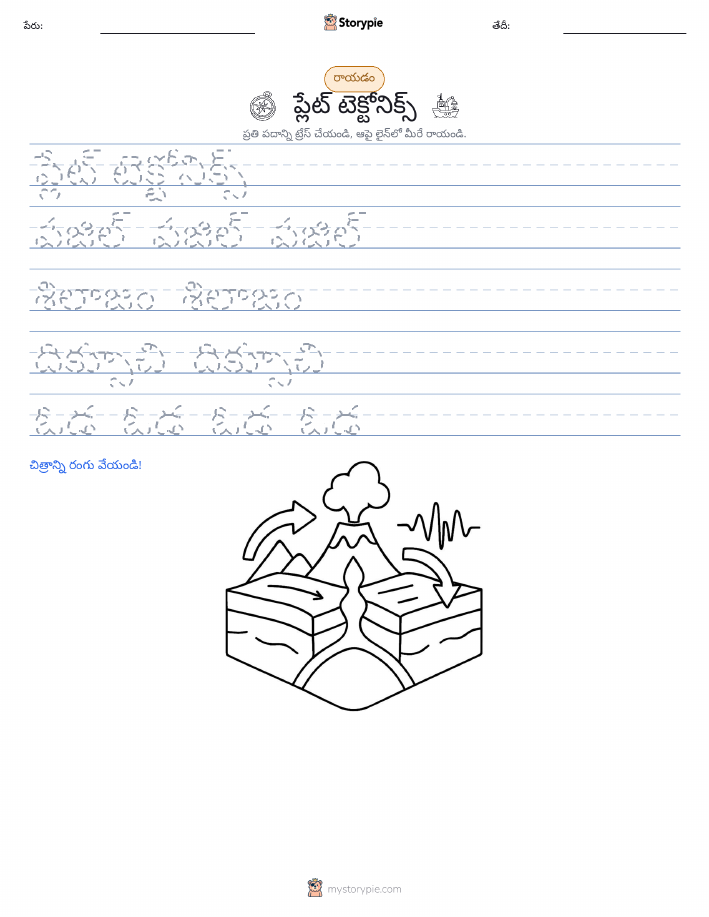 పేరు: Storypie తేదీ:
రాయడం
ప్లేట్ టెక్టోనిక్స్
ప్రతి పదాన్ని ట్రేస్ చేయండి, ఆపై లైన్‌లో మీరే రాయండి.
ప్లేట్ టెక్టోనిక్స్
పజిల్ పజిల్ పజిల్
శిలాజం శిలాజం
దిక్సూచి దిక్సూచి
ఓడ ఓడ ఓడ ఓడ
చిత్రాన్ని రంగు వేయండి!
mystorypie.com